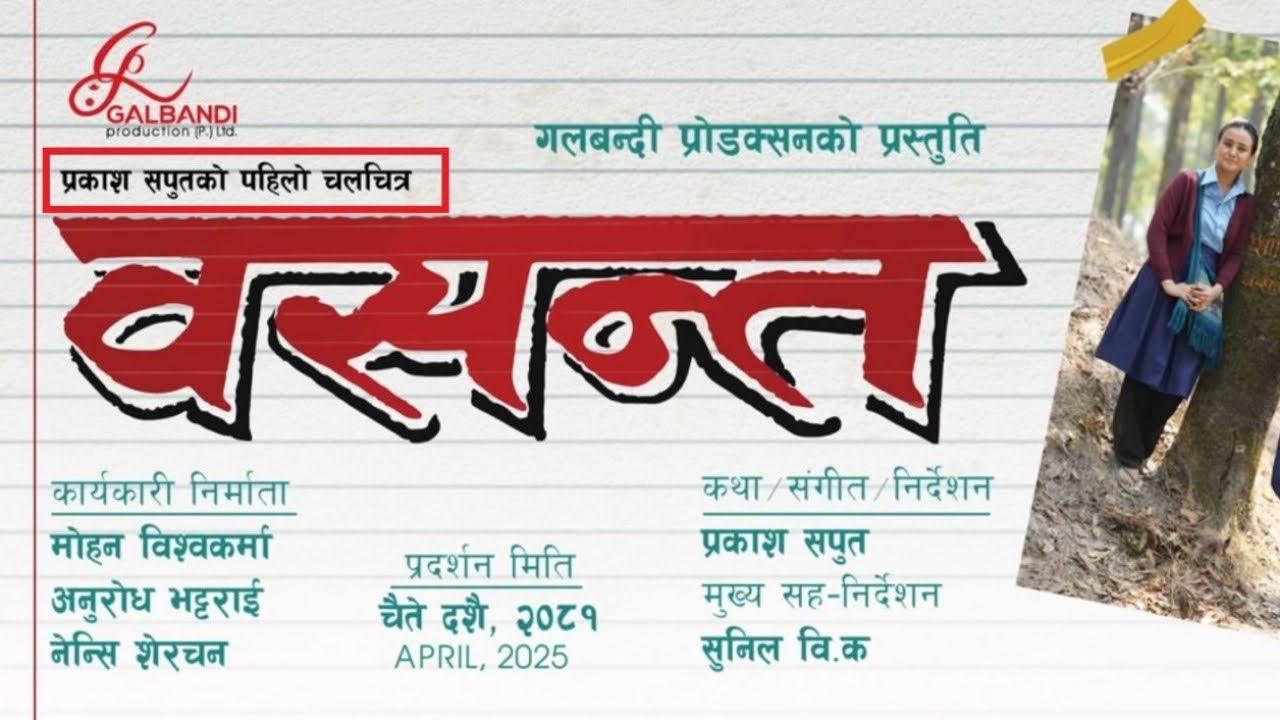 GALBANDI
production (P.) Ltd.
गलबन्दी प्रोडक्सनको प्रस्तुति
प्रकाश सपुतको पहिलो चलचित्र
वसन्त
कार्यकारी निर्माता
मोहन विश्वकर्मा
अनुरोध भट्टराई
नेन्सि शेरचन
प्रदर्शन मिति
चैते दशै, २०८१
APRIL, 2025
कथा/संगीत/निर्देशन
प्रकाश सपुत
मुख्य सह-निर्देशन
सुनिल वि.क